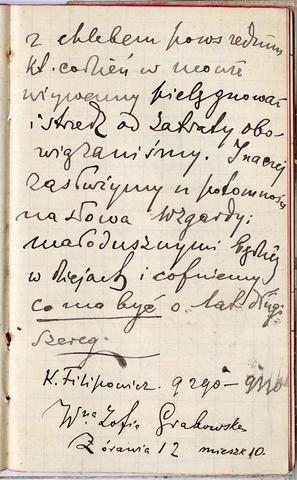 z chlebem powszednim
kt. codzień w
pielęgnować
i strzedz od zatraty obo-
wiązaniśmy. Inaczej
zasłużymy u potomności
na słowa wzgardy:
małodusznymi byliśmy
w dziejach i cofniemy
co ma być o tak długi
szereg.
K. Filipowicz. 9290 –
W<sup>na</sup> Zofia Grabowska
Żórawia 12 mieszk 10.